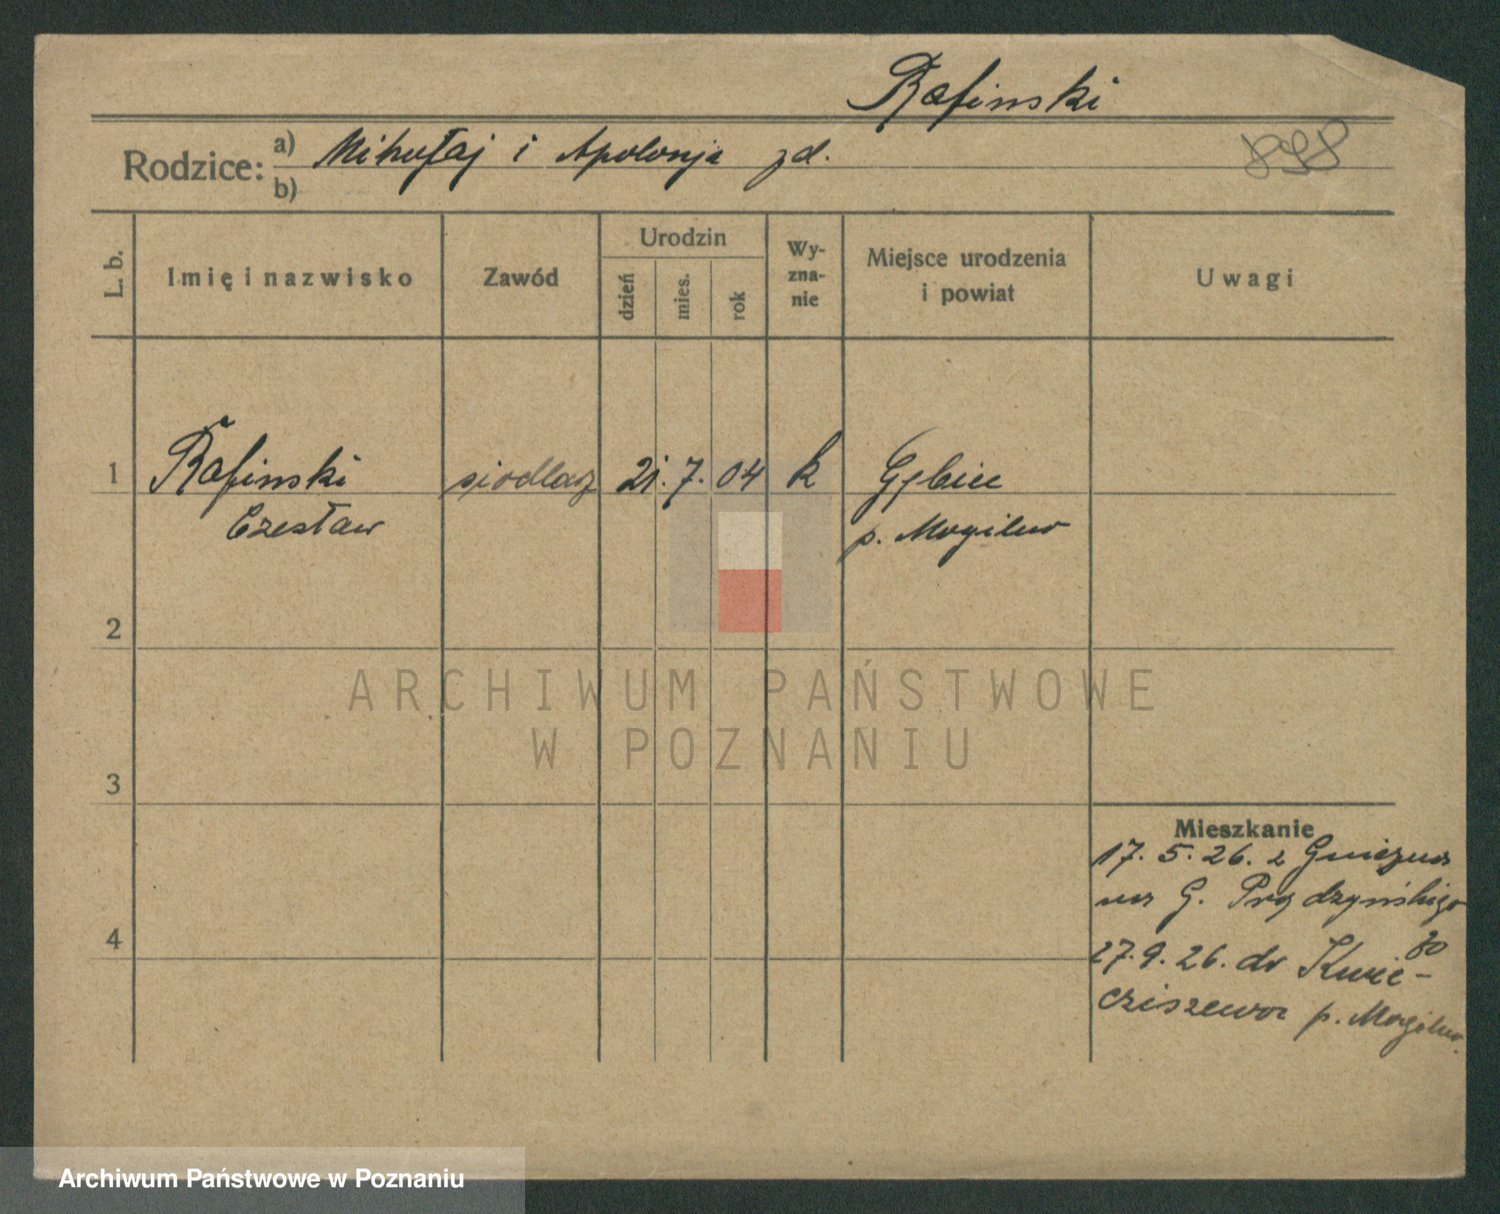 Rafinski
Rodzice: a) Mikołaj i Apolonja zd.
b)
L. b.
Imię i nazwisko
Zawód
Urodzin
dzień
mies.
rok
Wy-
zna-
nie
Miejsce urodzenia
i powiat
Uwagi
1 Rafinski siodlarz 21. 7. 04 k Gębice
Czesław p. Mogilno
2
ARCHIWUM PAŃSTWOWE
W POZNANIU
3
Mieszkanie
17. 5. 26. z Gniezna
na G. Prądzyńskiego
30
4
27. 9. 26. do Kwie-
ciszewa p. Mogilno.
Archiwum Państwowe w Poznaniu